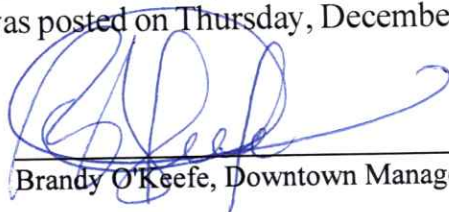 was posted on Thursday, December
Brandy O'Keefe, Downtown Manag